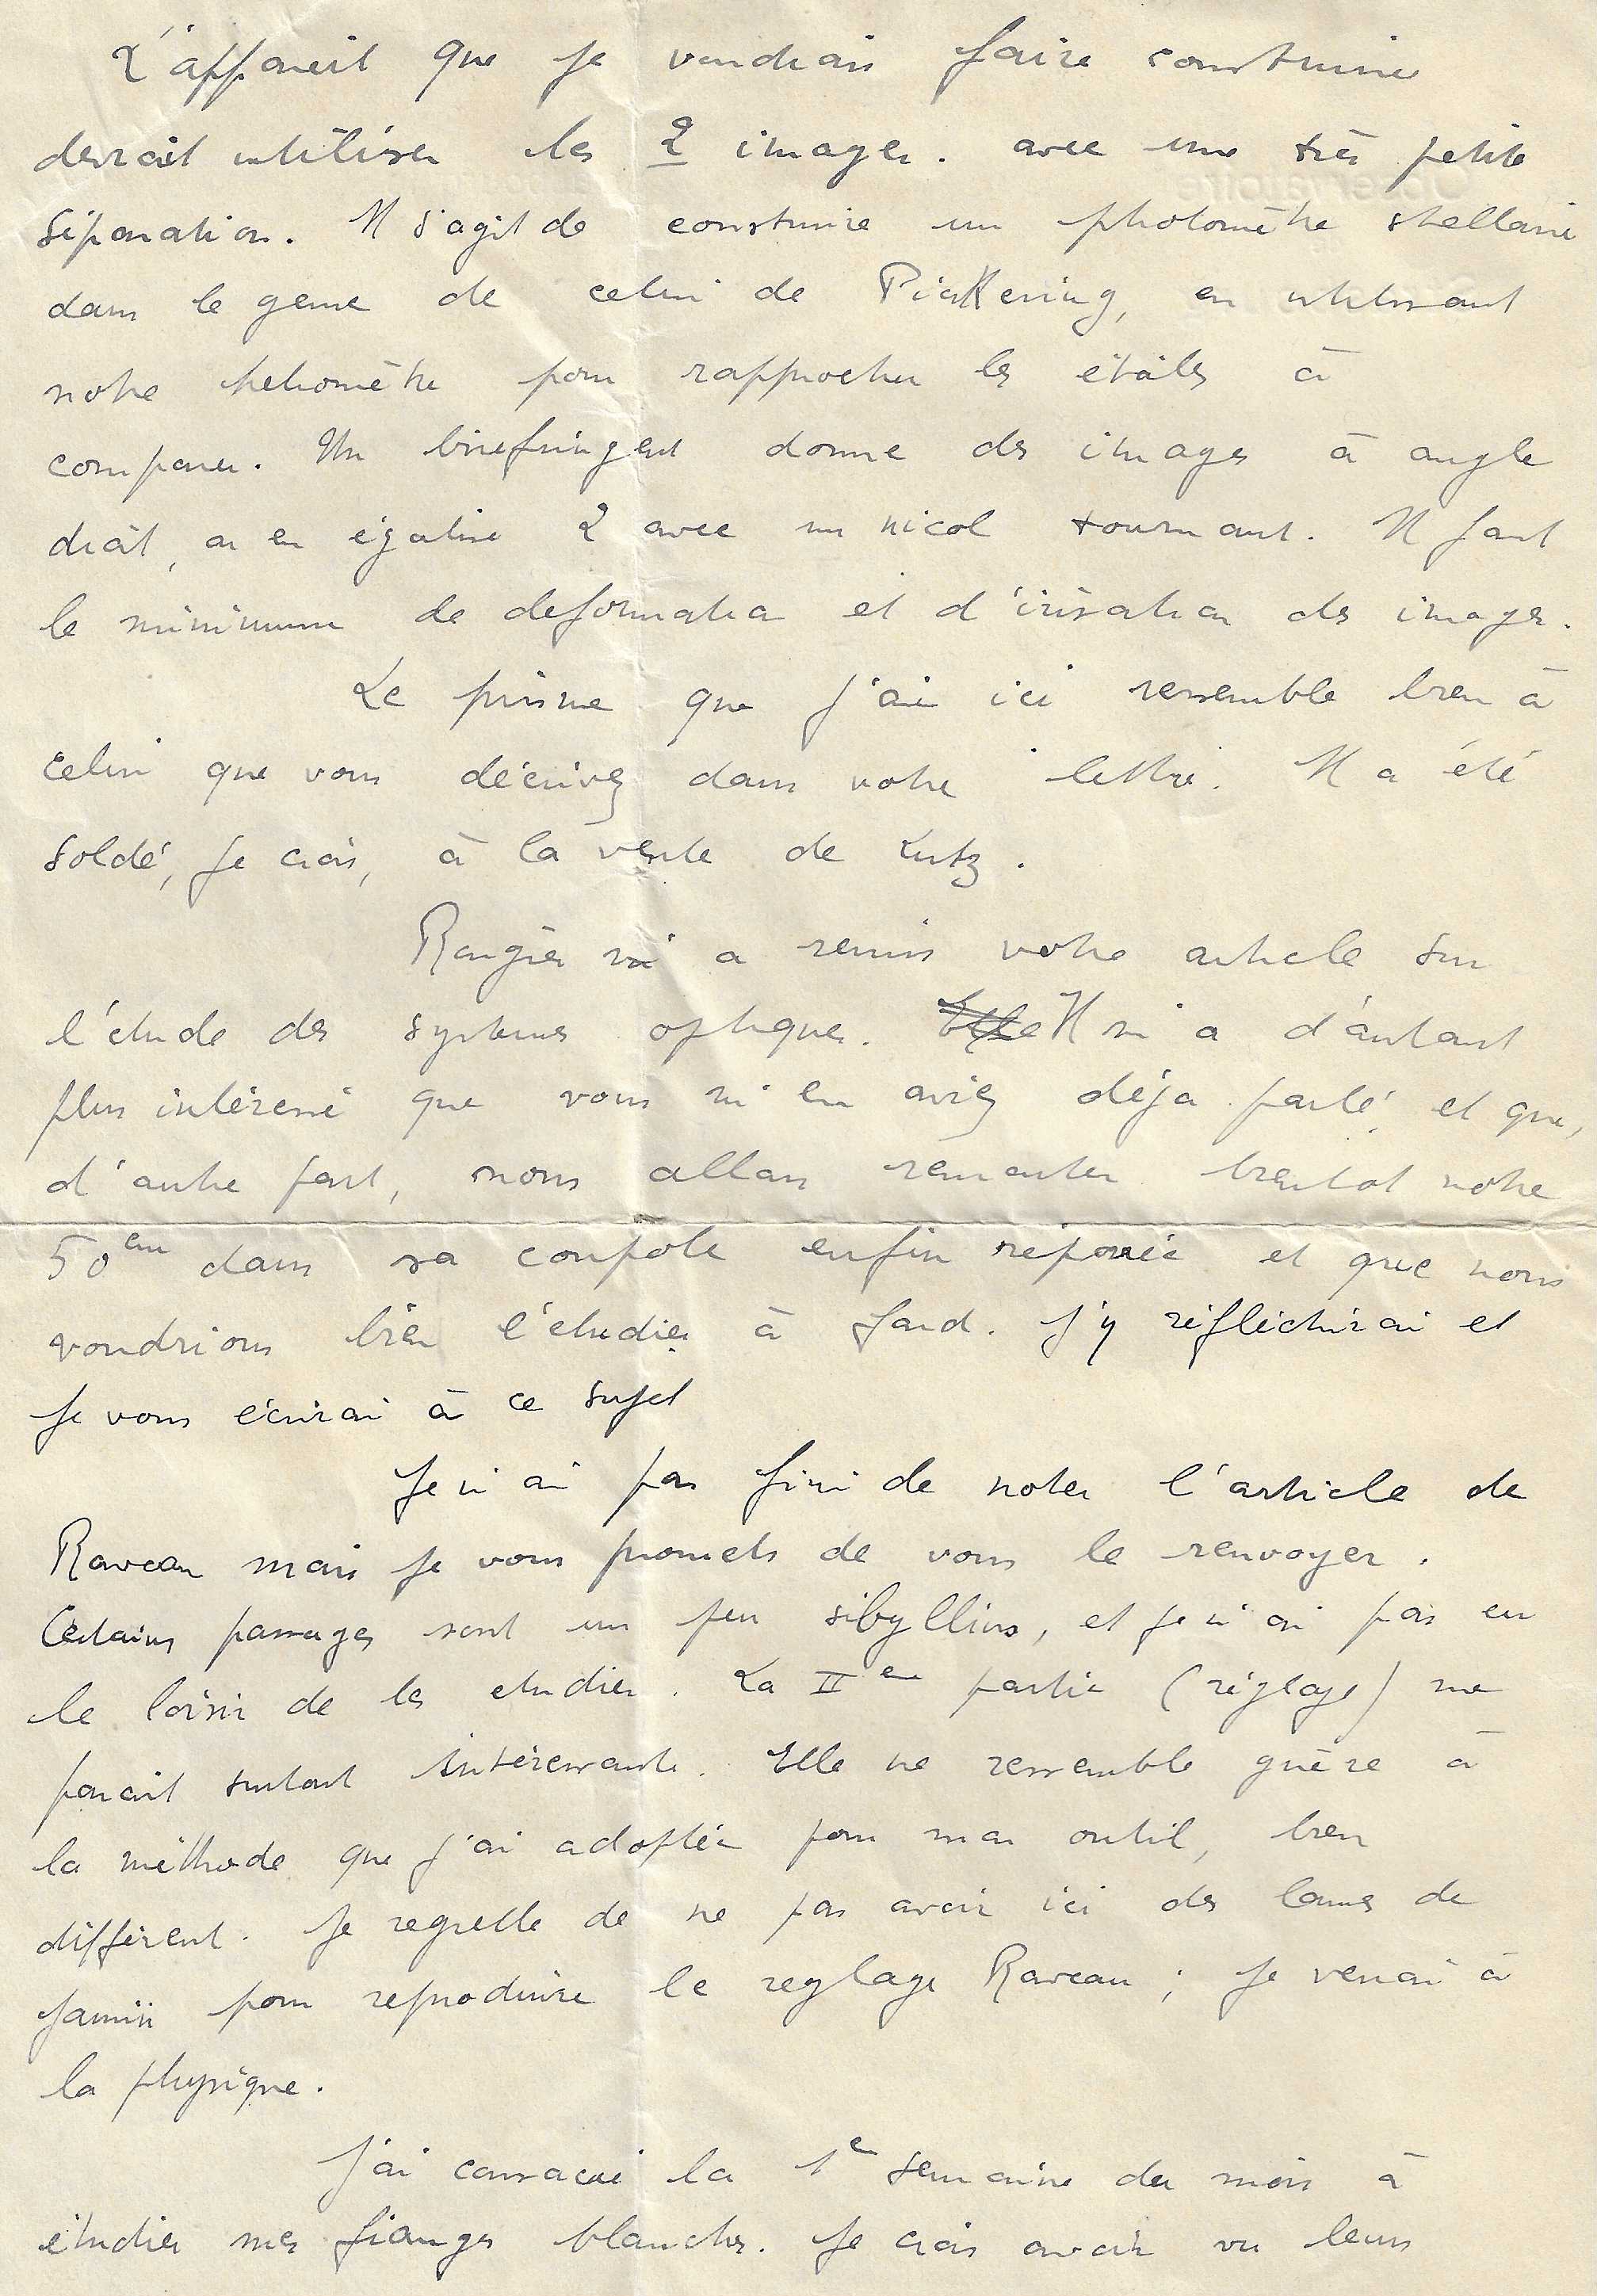 L'appareil que je voudrais faire construire
devrait utiliser les 2 images. avec une très petite
séparation. Il s'agit de construire un photomètre stellaire
dans le genre de celui de Pickering, en utilisant
notre heliomètre pour rapprocher les étoiles à
comparer. Un birefringent donne des images à angle
droit, on en égalise 2 avec un nicol tournant. Il faut
le minimum de deformation et d'irisation des images.
Le prisme que j'ai ici ressemble bien à
celui que vous décrivez dans votre lettre. Il a été
soldé, je crois, à la vente de Lutz.
Rougier m'a remis votre article sur
l'étude des systemes optiques. Il m'a d'autant
plus intéressé que vous m'en aviez déja parlé et que,
d'autre part, nous allons remonter bientot notre
50em dans sa coupole enfin réparée et que nous
voudrions bien l'étudier à fond. J'y réfléchirai et
je vous écrirai à ce sujet
Je n'ai pas fini de noter l'article de
Raveau mais je vous promets de vous le renvoyer.
Certains passages sont un peu sibyllins, et je n'ai pas eu
le loisir de les etudier. La IIe partie (réglage) me
parait surtout intéressante. Elle ne ressemble guère à
la méthode que j'ai adoptée pour mon outil, bien
différent. Je regrette de ne pas avoir ici des lames de
Jamin pour reproduire le reglage Raveau ; je verrai à
la physique.
J'ai consacré la 1e semaine du mois à
étudier mes franges blanches. Je crois avoir vu leurs